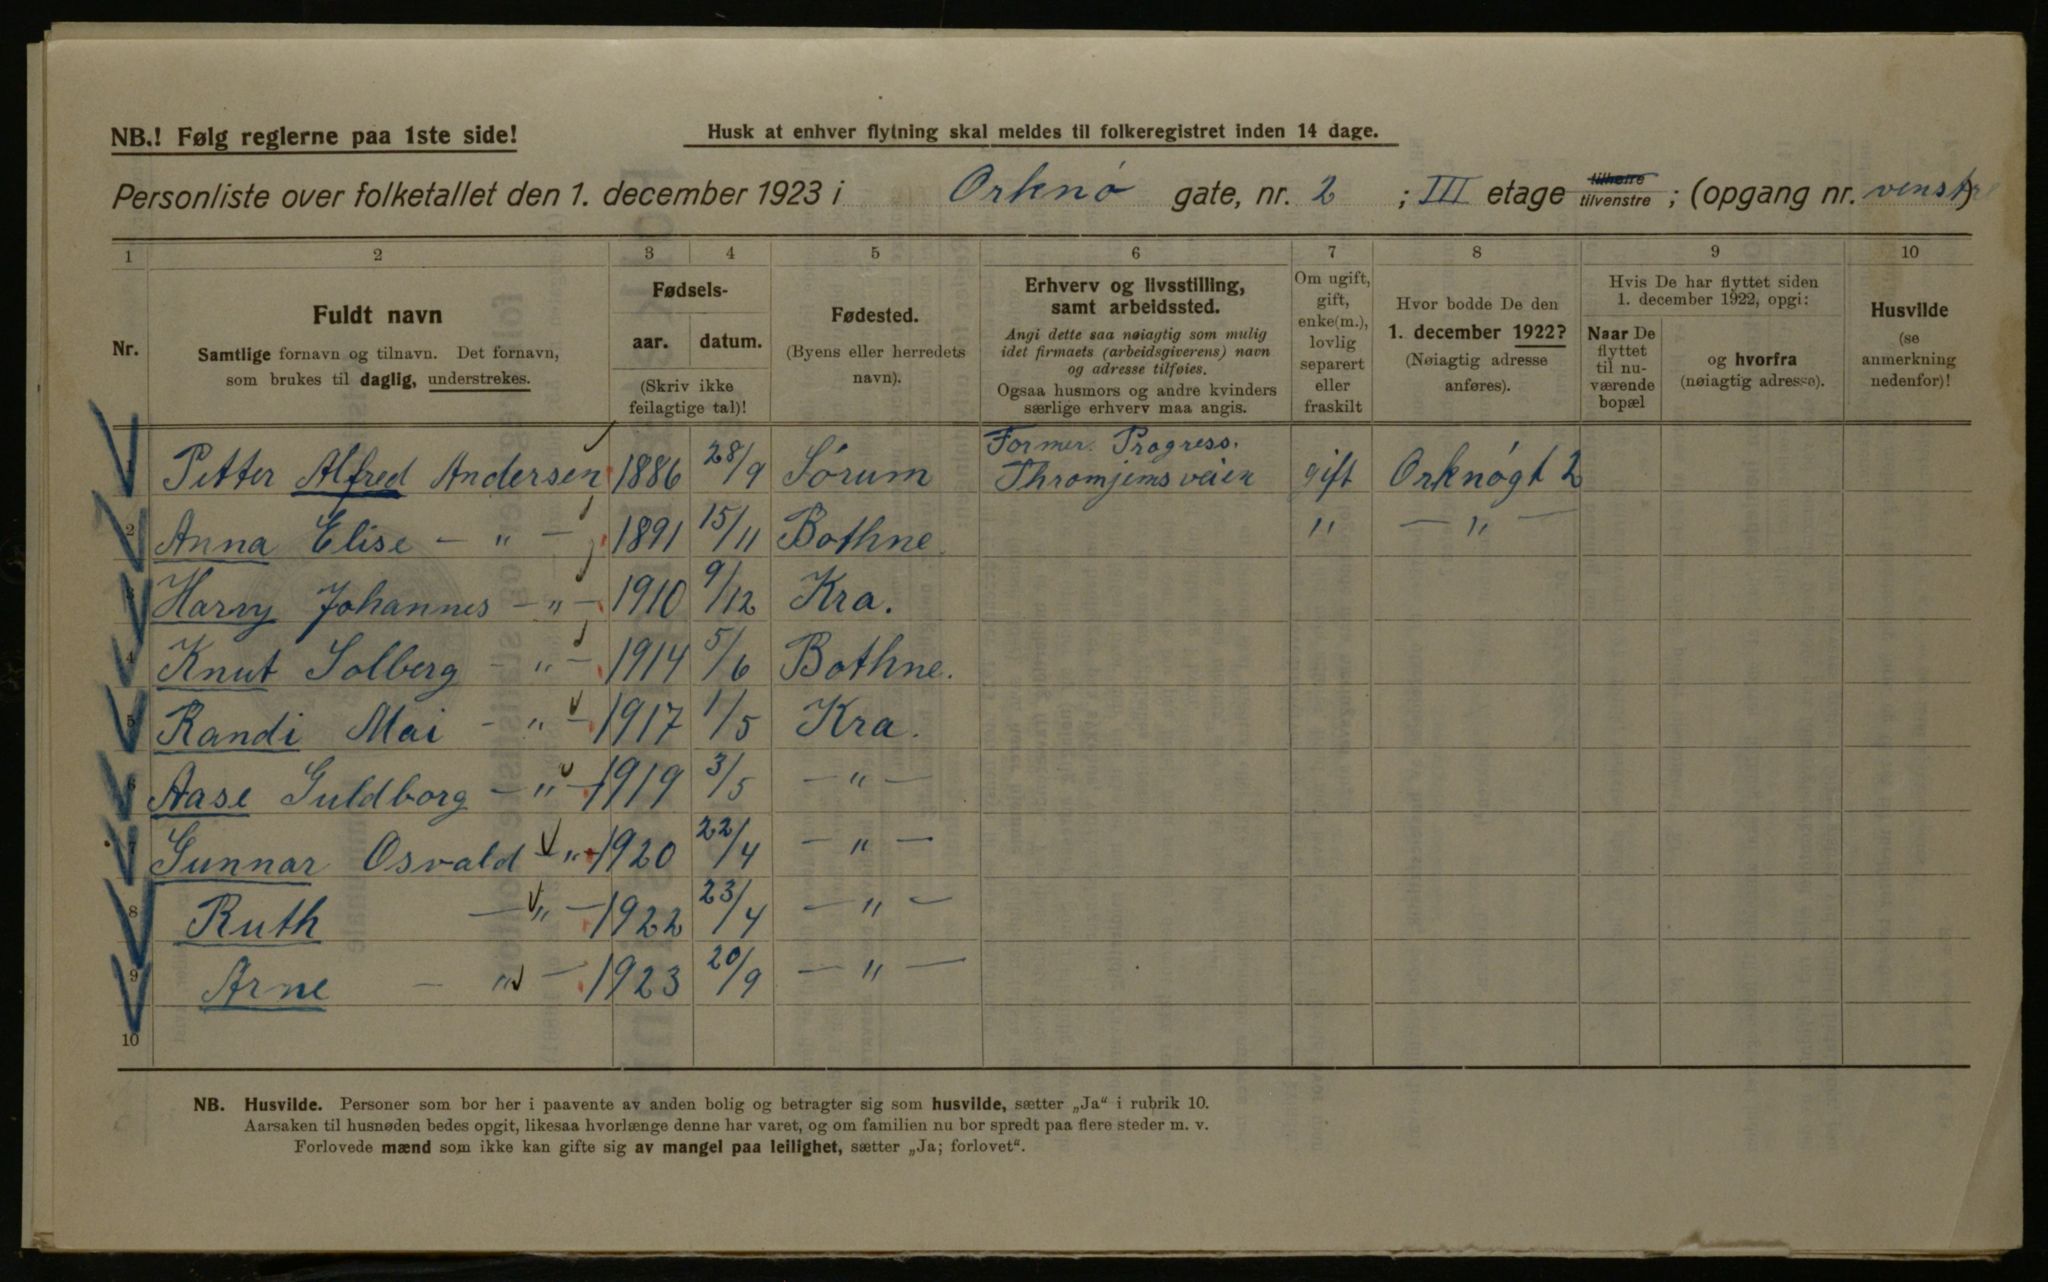 NB.! Følg reglerne paa 1ste side!
Husk at enhver flytning skal meldes til folkeregistret inden 14 dage.
Personliste over folketallet den 1. december 1923 i Orknø gate, nr. 2 ; III etage tilhøire tilvenstre ; (opgang nr. venstre)
1 2 3 4 5 6 7 8 9 10
Nr.
Fuldt navn
Samtlige fornavn og tilnavn. Det fornavn,
som brukes til daglig, understrekes.
Fødsels-
aar. datum.
(Skriv ikke
feilagtige tal)!
Fødested.
(Byens eller herredets
navn).
Erhverv og livsstilling,
samt arbeidssted.
Angi dette saa nøiagtig som mulig
idet firmaets (arbeidsgiverens) navn
og adresse tilføies.
Ogsaa husmors og andre kvinders
særlige erhverv maa angis.
Om ugift,
gift,
enke(m.),
lovlig
separert
eller
fraskilt
Hvor bodde De den
1. december 1922?
(Nøiagtig adresse
anføres).
Hvis De har flyttet siden
1. december 1922, opgi:
Naar De
flyttet
til nu-
værende
bopæl
og hvorfra
(nøiagtig adresse).
Husvilde
(se
anmerkning
nedenfor)!
Former. Progress.
Petter Alfred Andersen 1886 28/9 Sørum Thromjemsveien gift Orknøgt 2
2 Anna Elise — " — 1891 15/11 Bothne " — " —
Harry Johannes — " — 1910 9/12 Kra.
4 Knut Solberg — " — 1914 5/6 Bothne.
5 Randi Mai — " — 1917 1/5 Kra.
6 Aase Guldborg — " — 1919 3/5 — " —
7 Gunnar Osvald — " — 1920 22/4 — " —
8 Ruth — " — 1922 23/4 — " —
9 Arne — " — 1923 20/9 — " —
10
NB. Husvilde. Personer som bor her i paavente av anden bolig og betragter sig som husvilde, sætter „Ja“ i rubrik 10.
Aarsaken til husnøden bedes opgit, likesaa hvorlænge denne har varet, og om familien nu bor spredt paa flere steder m. v.
Forlovede mænd som ikke kan gifte sig av mangel paa leilighet, sætter „Ja; forlovet“.